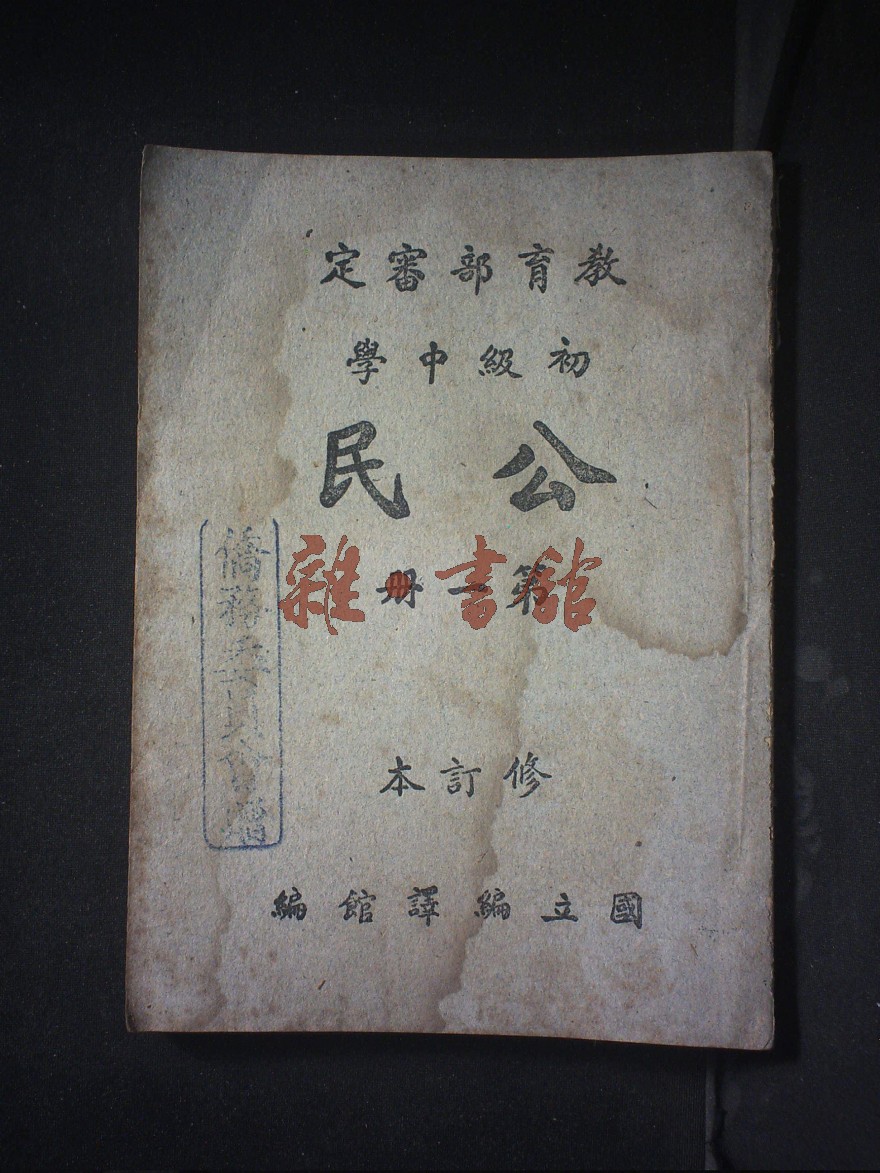 教育部審定
初級中學
公民
第一册
修訂本
國立編譯館編
僑務委員會贈
雜·書館